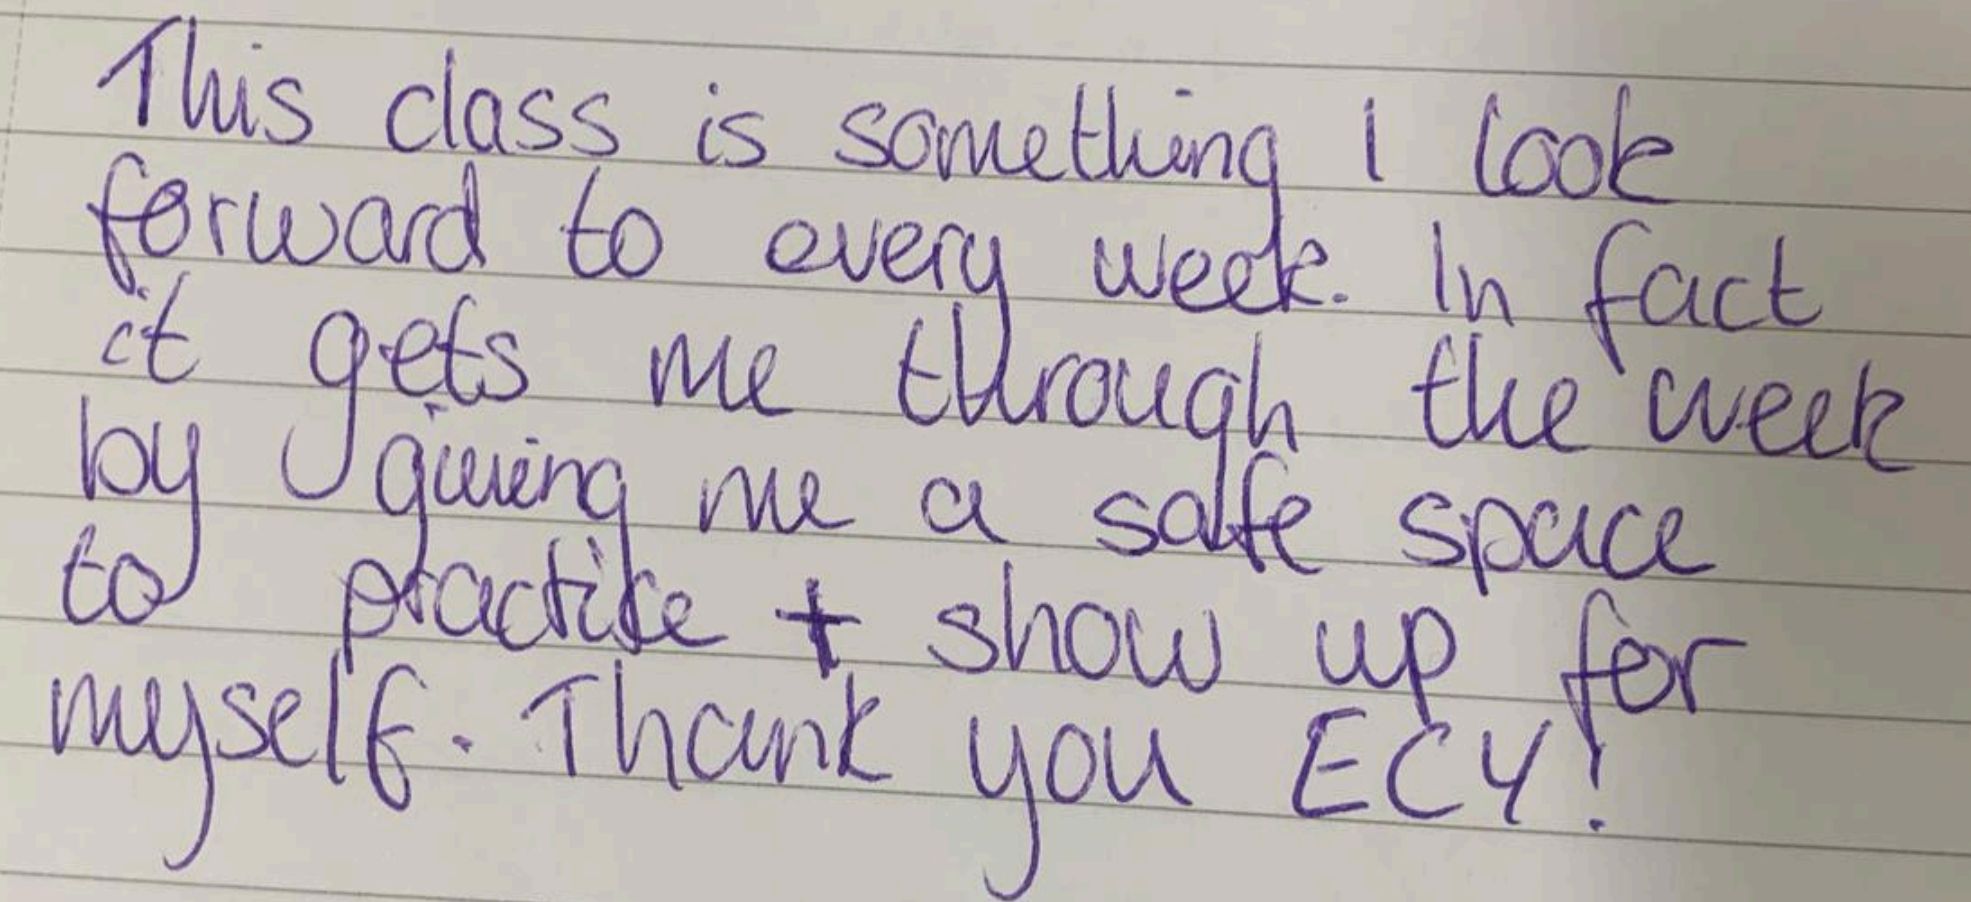 This class is something I look
forward to every week. In fact
it gets me through the week
by giving me a safe space
to practise + show up for
myself. Thank you ECY!